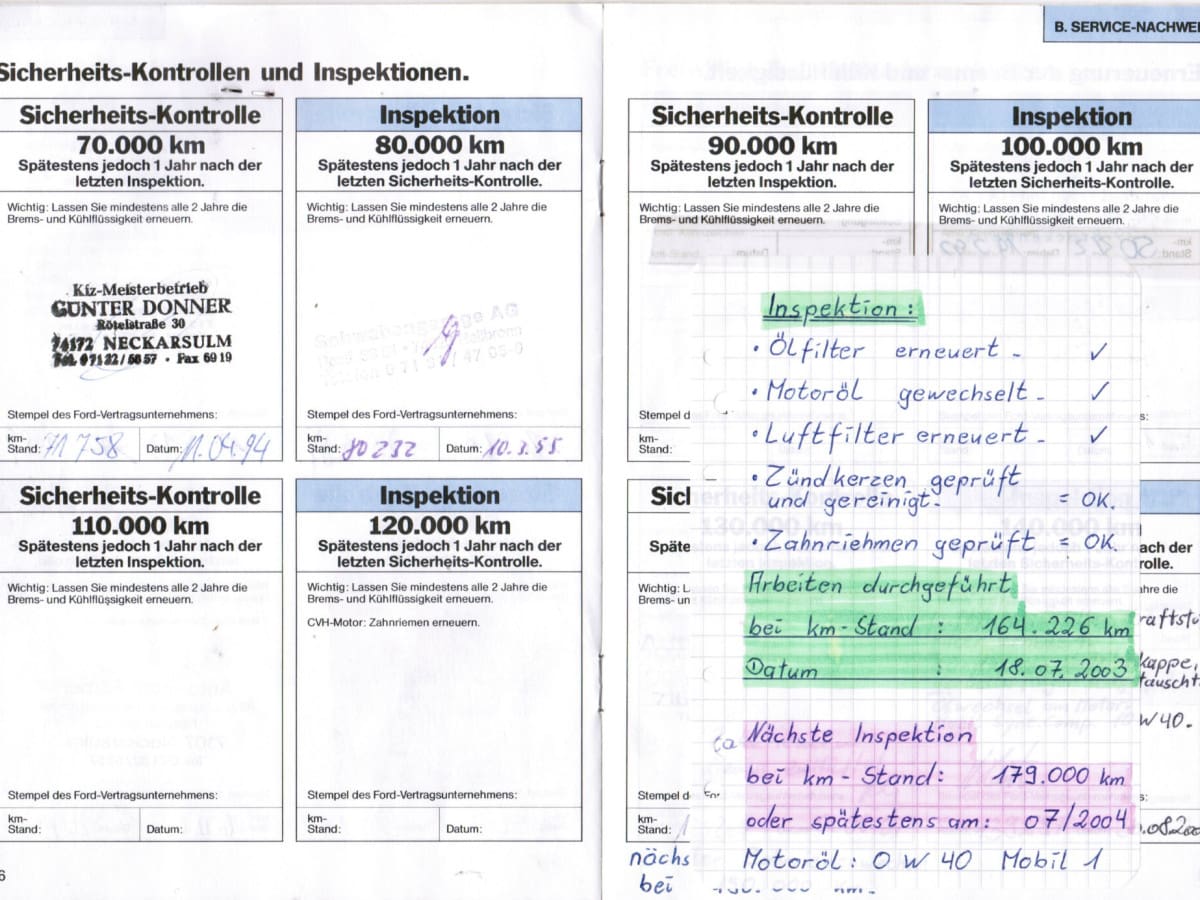 B. SERVICE-NACHWEI
Sicherheits-Kontrollen und Inspektionen.
Sicherheits-Kontrolle
70.000 km
Spätestens jedoch 1 Jahr nach der
letzten Inspektion.
Wichtig: Lassen Sie mindestens alle 2 Jahre die
Brems- und Kühlflüssigkeit erneuern.
Kfz-Meisterbetrieb
GÜNTER DONNER
Rötelstraße 30
74172 NECKARSULM
Tel. 07132/6657 · Fax 6919
Stempel des Ford-Vertragsunternehmens:
km-
Stand: 71758 Datum: 11.04.94
Inspektion
80.000 km
Spätestens jedoch 1 Jahr nach der
letzten Sicherheits-Kontrolle.
Wichtig: Lassen Sie mindestens alle 2 Jahre die
Brems- und Kühlflüssigkeit erneuern.
Schwabengarage AG
Stempel des Ford-Vertragsunternehmens:
km-
Stand: 80232 Datum: 10.3.95
Sicherheits-Kontrolle
90.000 km
Spätestens jedoch 1 Jahr nach der
letzten Inspektion.
Wichtig: Lassen Sie mindestens alle 2 Jahre die
Brems- und Kühlflüssigkeit erneuern.
Stempel d
km-
Stand:
Inspektion
100.000 km
Spätestens jedoch 1 Jahr nach der
letzten Sicherheits-Kontrolle.
Wichtig: Lassen Sie mindestens alle 2 Jahre die
Brems- und Kühlflüssigkeit erneuern.
s:
Inspektion:
· Ölfilter erneuert - ✓
· Motoröl gewechselt - ✓
· Luftfilter erneuert - ✓
· Zündkerzen geprüft
und gereinigt. = OK.
· Zahnriemen geprüft = OK.
Arbeiten durchgeführt
bei km-Stand : 164.226 km
Datum : 18.07.2003
Nächste Inspektion
bei km-Stand: 179.000 km
oder spätestens am: 07/2004
Motoröl: 0 W 40 Mobil 1
Sicherheits-Kontrolle
110.000 km
Spätestens jedoch 1 Jahr nach der
letzten Inspektion.
Wichtig: Lassen Sie mindestens alle 2 Jahre die
Brems- und Kühlflüssigkeit erneuern.
Stempel des Ford-Vertragsunternehmens:
km-
Stand: Datum:
Inspektion
120.000 km
Spätestens jedoch 1 Jahr nach der
letzten Sicherheits-Kontrolle.
Wichtig: Lassen Sie mindestens alle 2 Jahre die
Brems- und Kühlflüssigkeit erneuern.
CVH-Motor: Zahnriemen erneuern.
Stempel des Ford-Vertragsunternehmens:
km-
Stand: Datum:
Sicherheits-Kon
130.000 km
Späte
Wichtig: L
Brems- un
Stempel d
km-
Stand:
nächs
bei
140.000 km
ach der
rolle.
ahre die
raftstu
kappe,
tauscht
W 40.
s:
.08.200
6